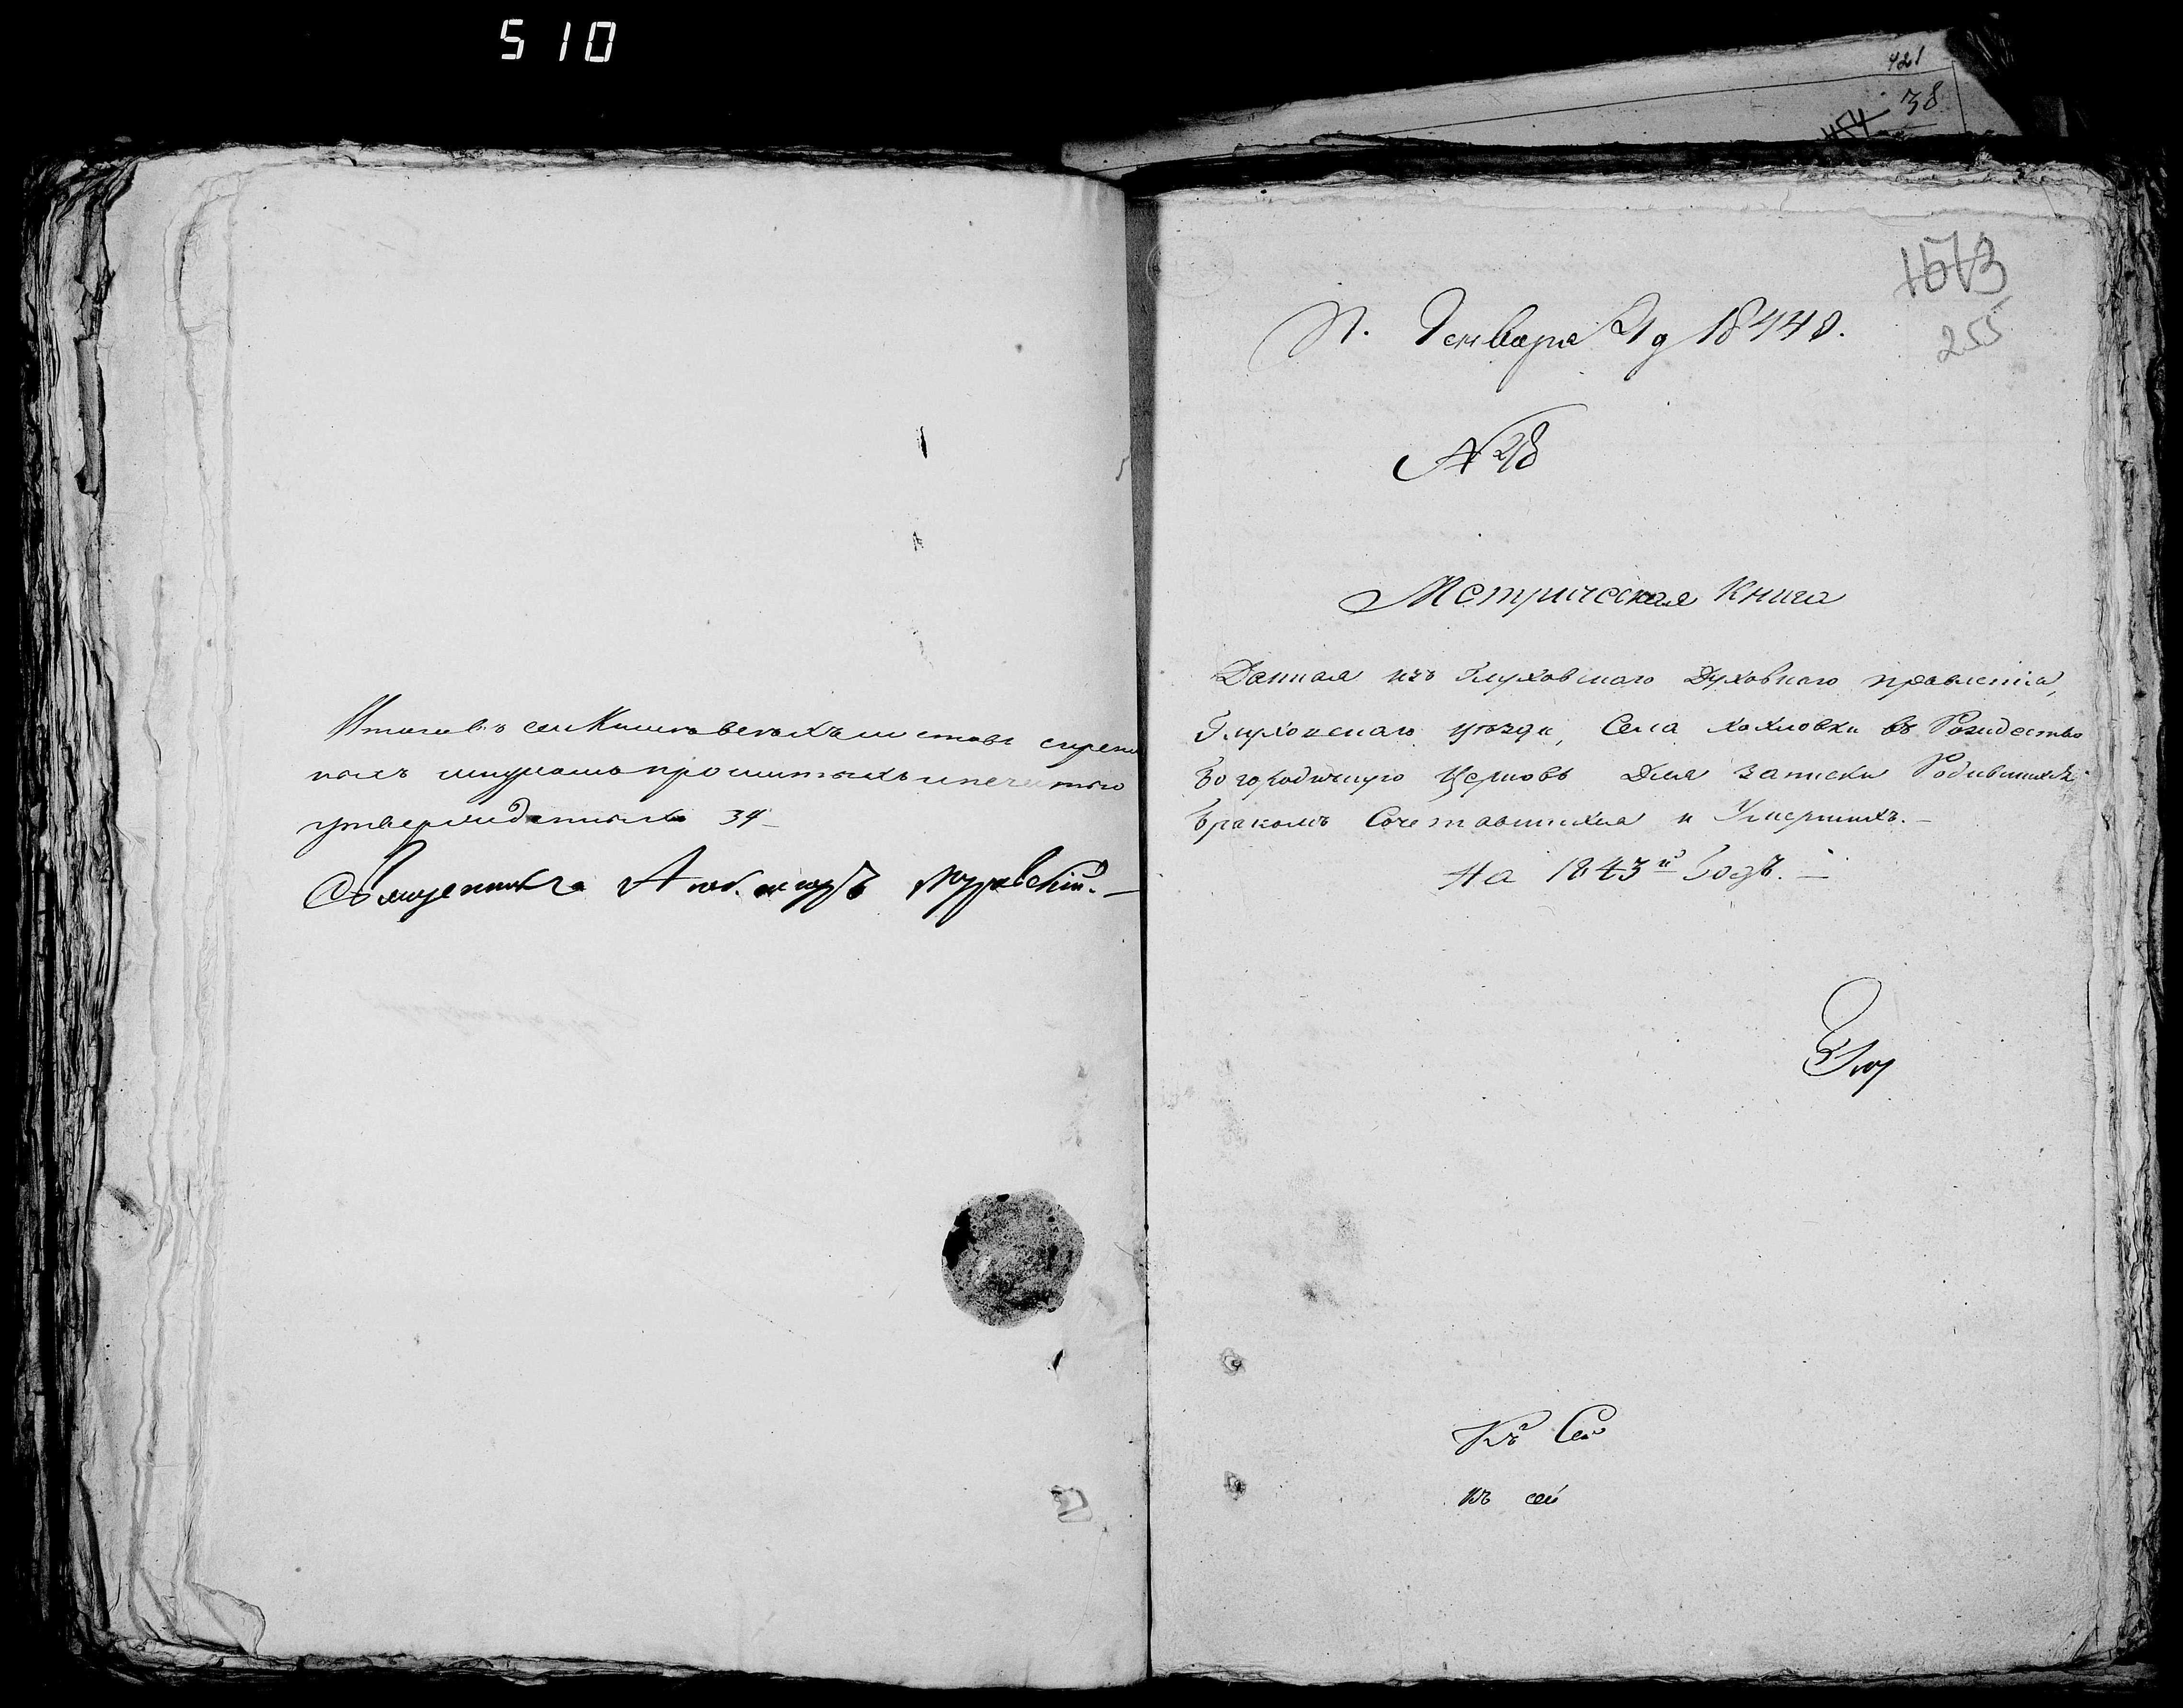 510
421
38
454
Итого въ сей Книге всехъ листовъ скрепо
ныхъ шнуромъ прошитыхъ и печатью
утвержденныхъ 34
Священникъ
1673
255
П. Генваря 21 д 1844
№ 28
Метрическая Книга
Данная изъ Глуховскаго Духовнаго правленія,
Глуховскаго уѣзда, Села Хохловки въ Рождество
Богородичную Церковь Для записки Родившихся
Бракомъ Сочетавшихся и Умершихъ.
На 1843й Годъ.
Къ Сей
къ сей